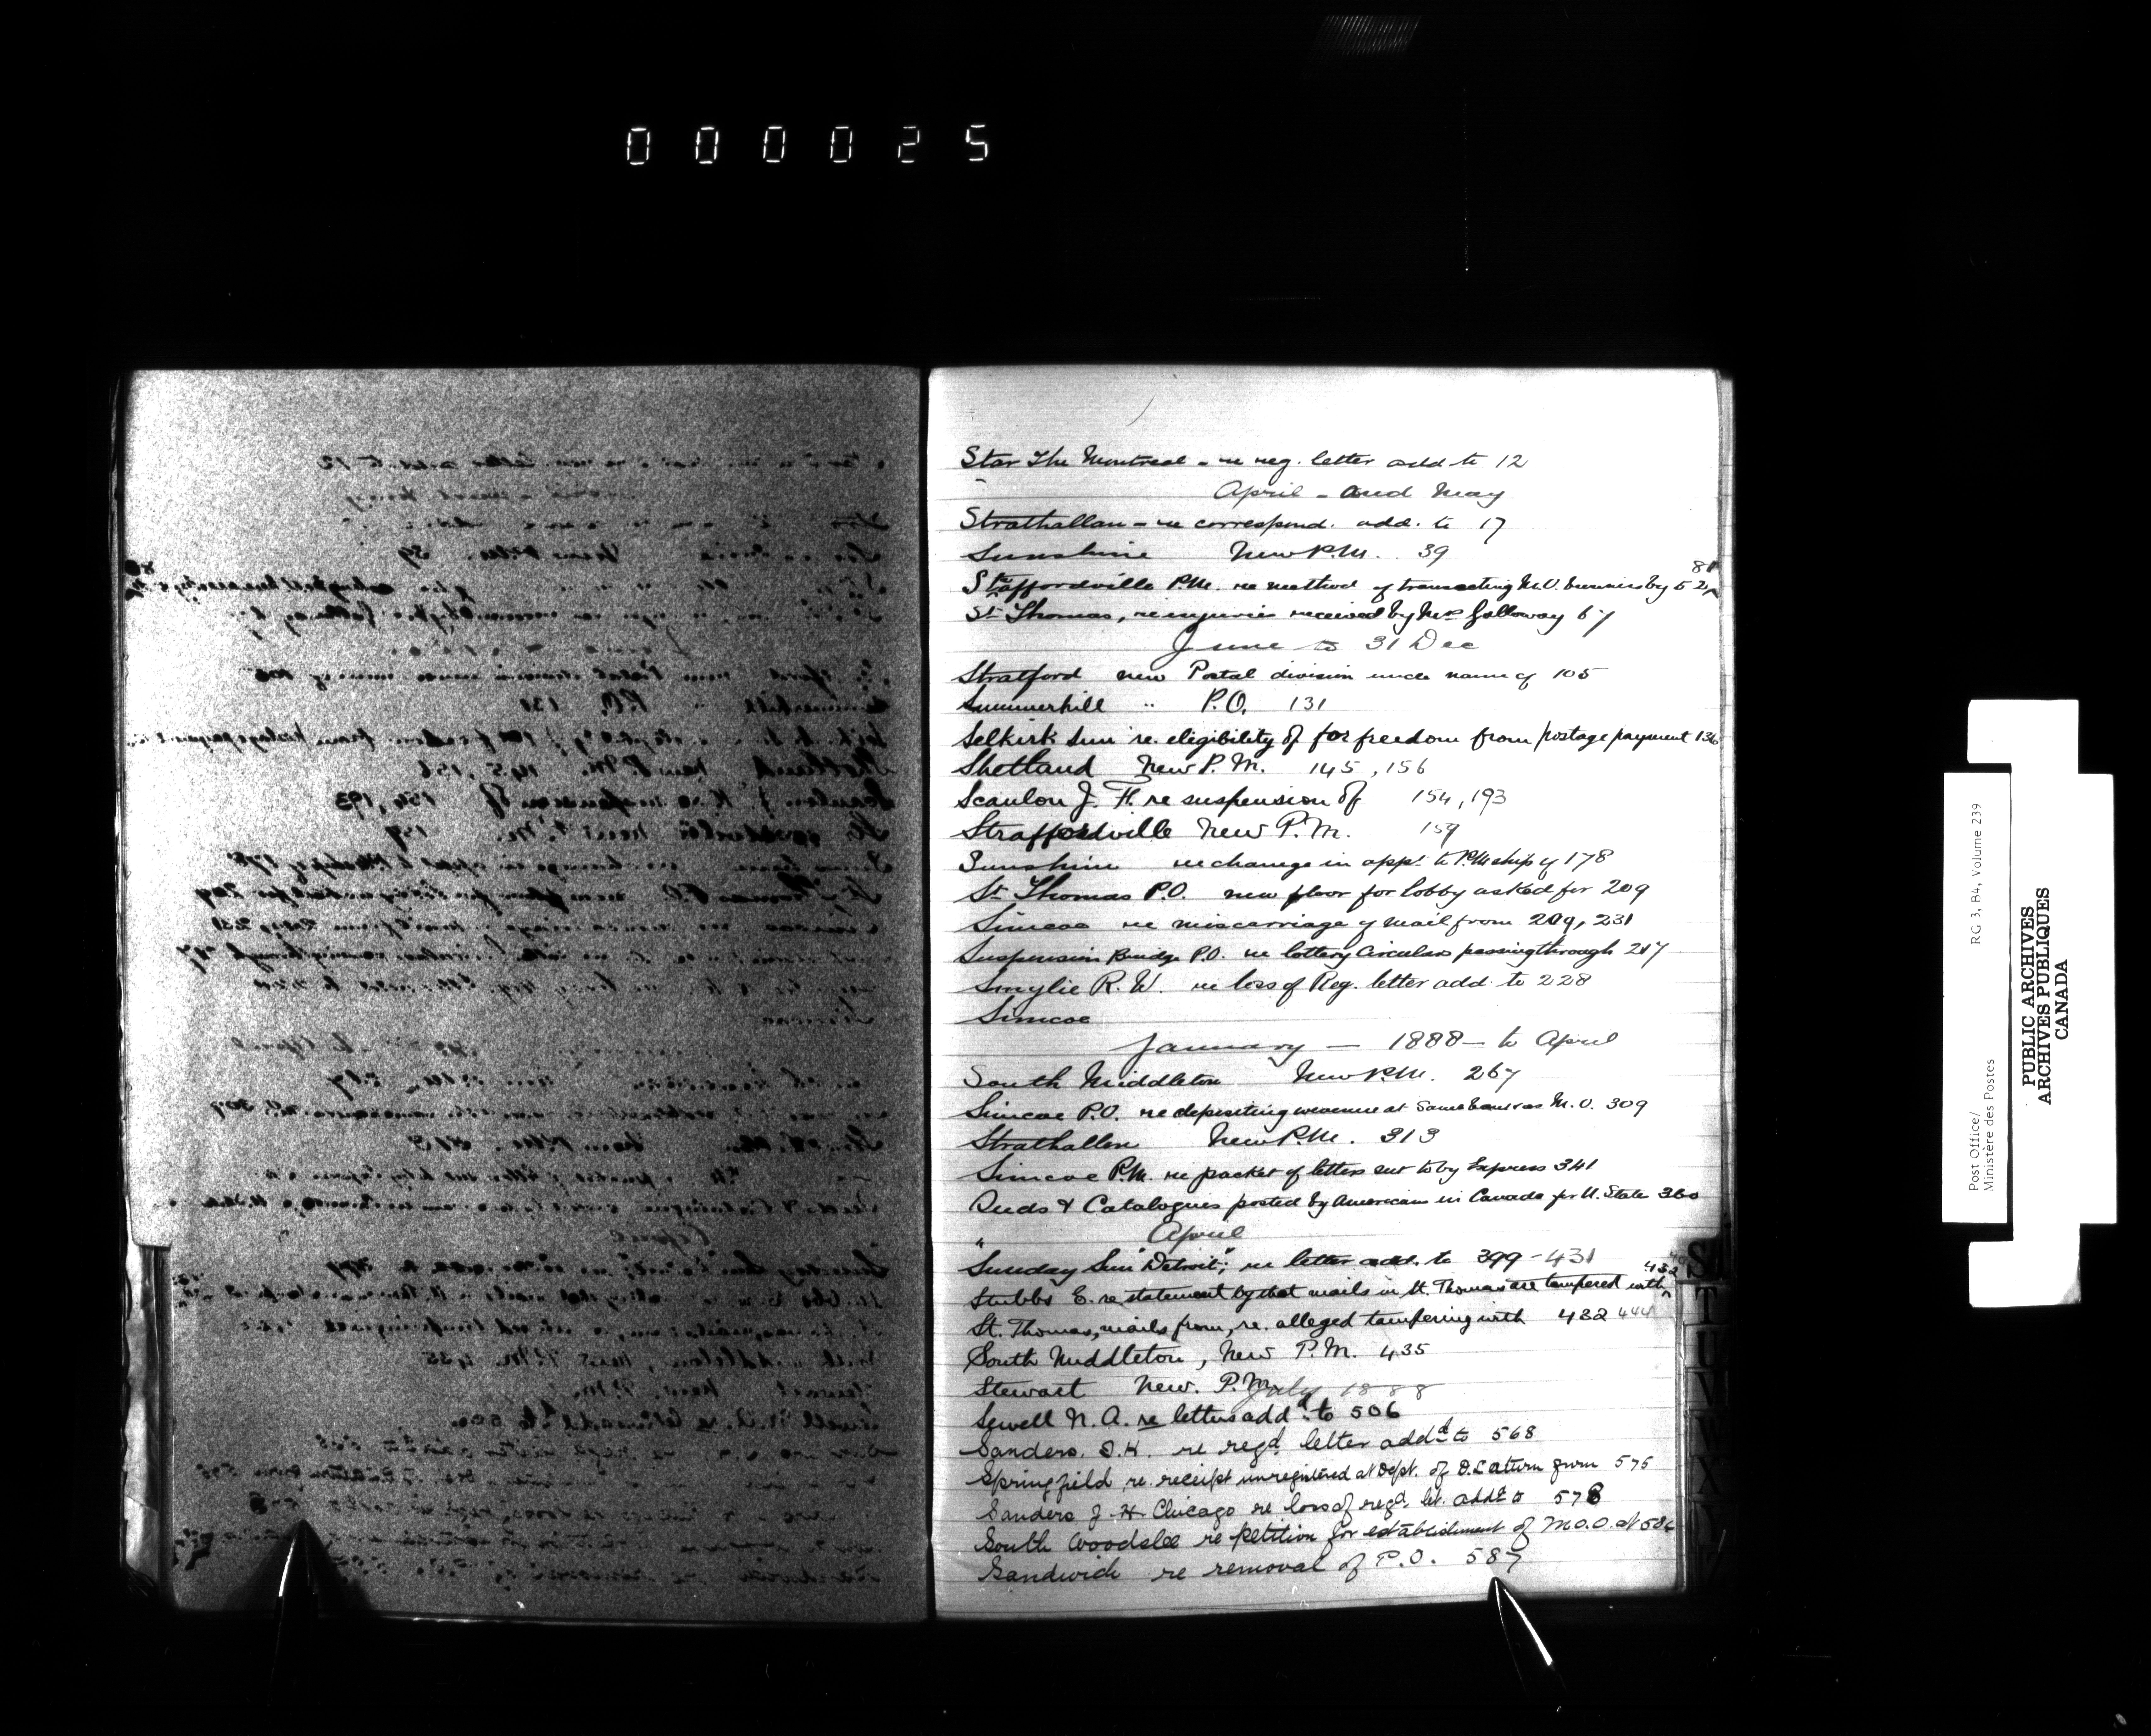 000025
Star The Montreal - re reg. letter add to 12
April - and May
Strathallan - re correspond. add. to 17
Sunshine New P.M. 39
Staffordville P.M. re method of transacting M.O. business by 52, 81
St Thomas, re injuries received by Mr Galloway 67
June to 31 Dec
Stratford new Postal division under name of 105
Summerhill " P.O. 131
Selkirk Sun re. eligibility of for freedom from postage payment 136
Shetland New P.M. 145, 156
Scanlon J. F. re suspension of 154, 193
Straffordville New P.M. 159
Sunshine re change in appt to P.Mship of 178
St Thomas P.O. new floor for lobby asked for 209
Simcoe re miscarriage of mail from 209, 231
Suspension Bridge P.O. re lottery Circulars passing through 217
Smylie R. W. re loss of Reg. letter add to 228
Simcoe
January - 1888 - to April
South Middleton New P.M. 267
Simcoe P.O. re depositing revenue at same bank as M.O. 309
Strathallan New P.M. 313
Simcoe P.M. re packet of letters sent to by Express 341
Seeds & Catalogues posted by Americans in Canada for U. State 360
April
"Sunday Sun" Detroit; re letter add. to 399 - 431
Stubbs E. re statement by that mails in St. Thomas are tampered with 432
St. Thomas, mails from, re. alleged tampering with 432 444
South Middleton, New P.M. 435
Stewart New. P.M.
July 1888
Sewell N. A. re letters addd to 506
Sanders. J.H. re regd letter addd to 568
Springfield re. receipt unregistered at Dept. of D.L return from 575
Sanders J H Chicago re loss of regd let. addd to 578
South Woodslee re petition for establishment of M.O.O. at 586
Sandwich re removal of P.O. 587
S
T
U
V
W
X
Y
Z
Post Office/
Ministère des Postes
RG 3, B4, Volume 239
PUBLIC ARCHIVES
ARCHIVES PUBLIQUES
CANADA